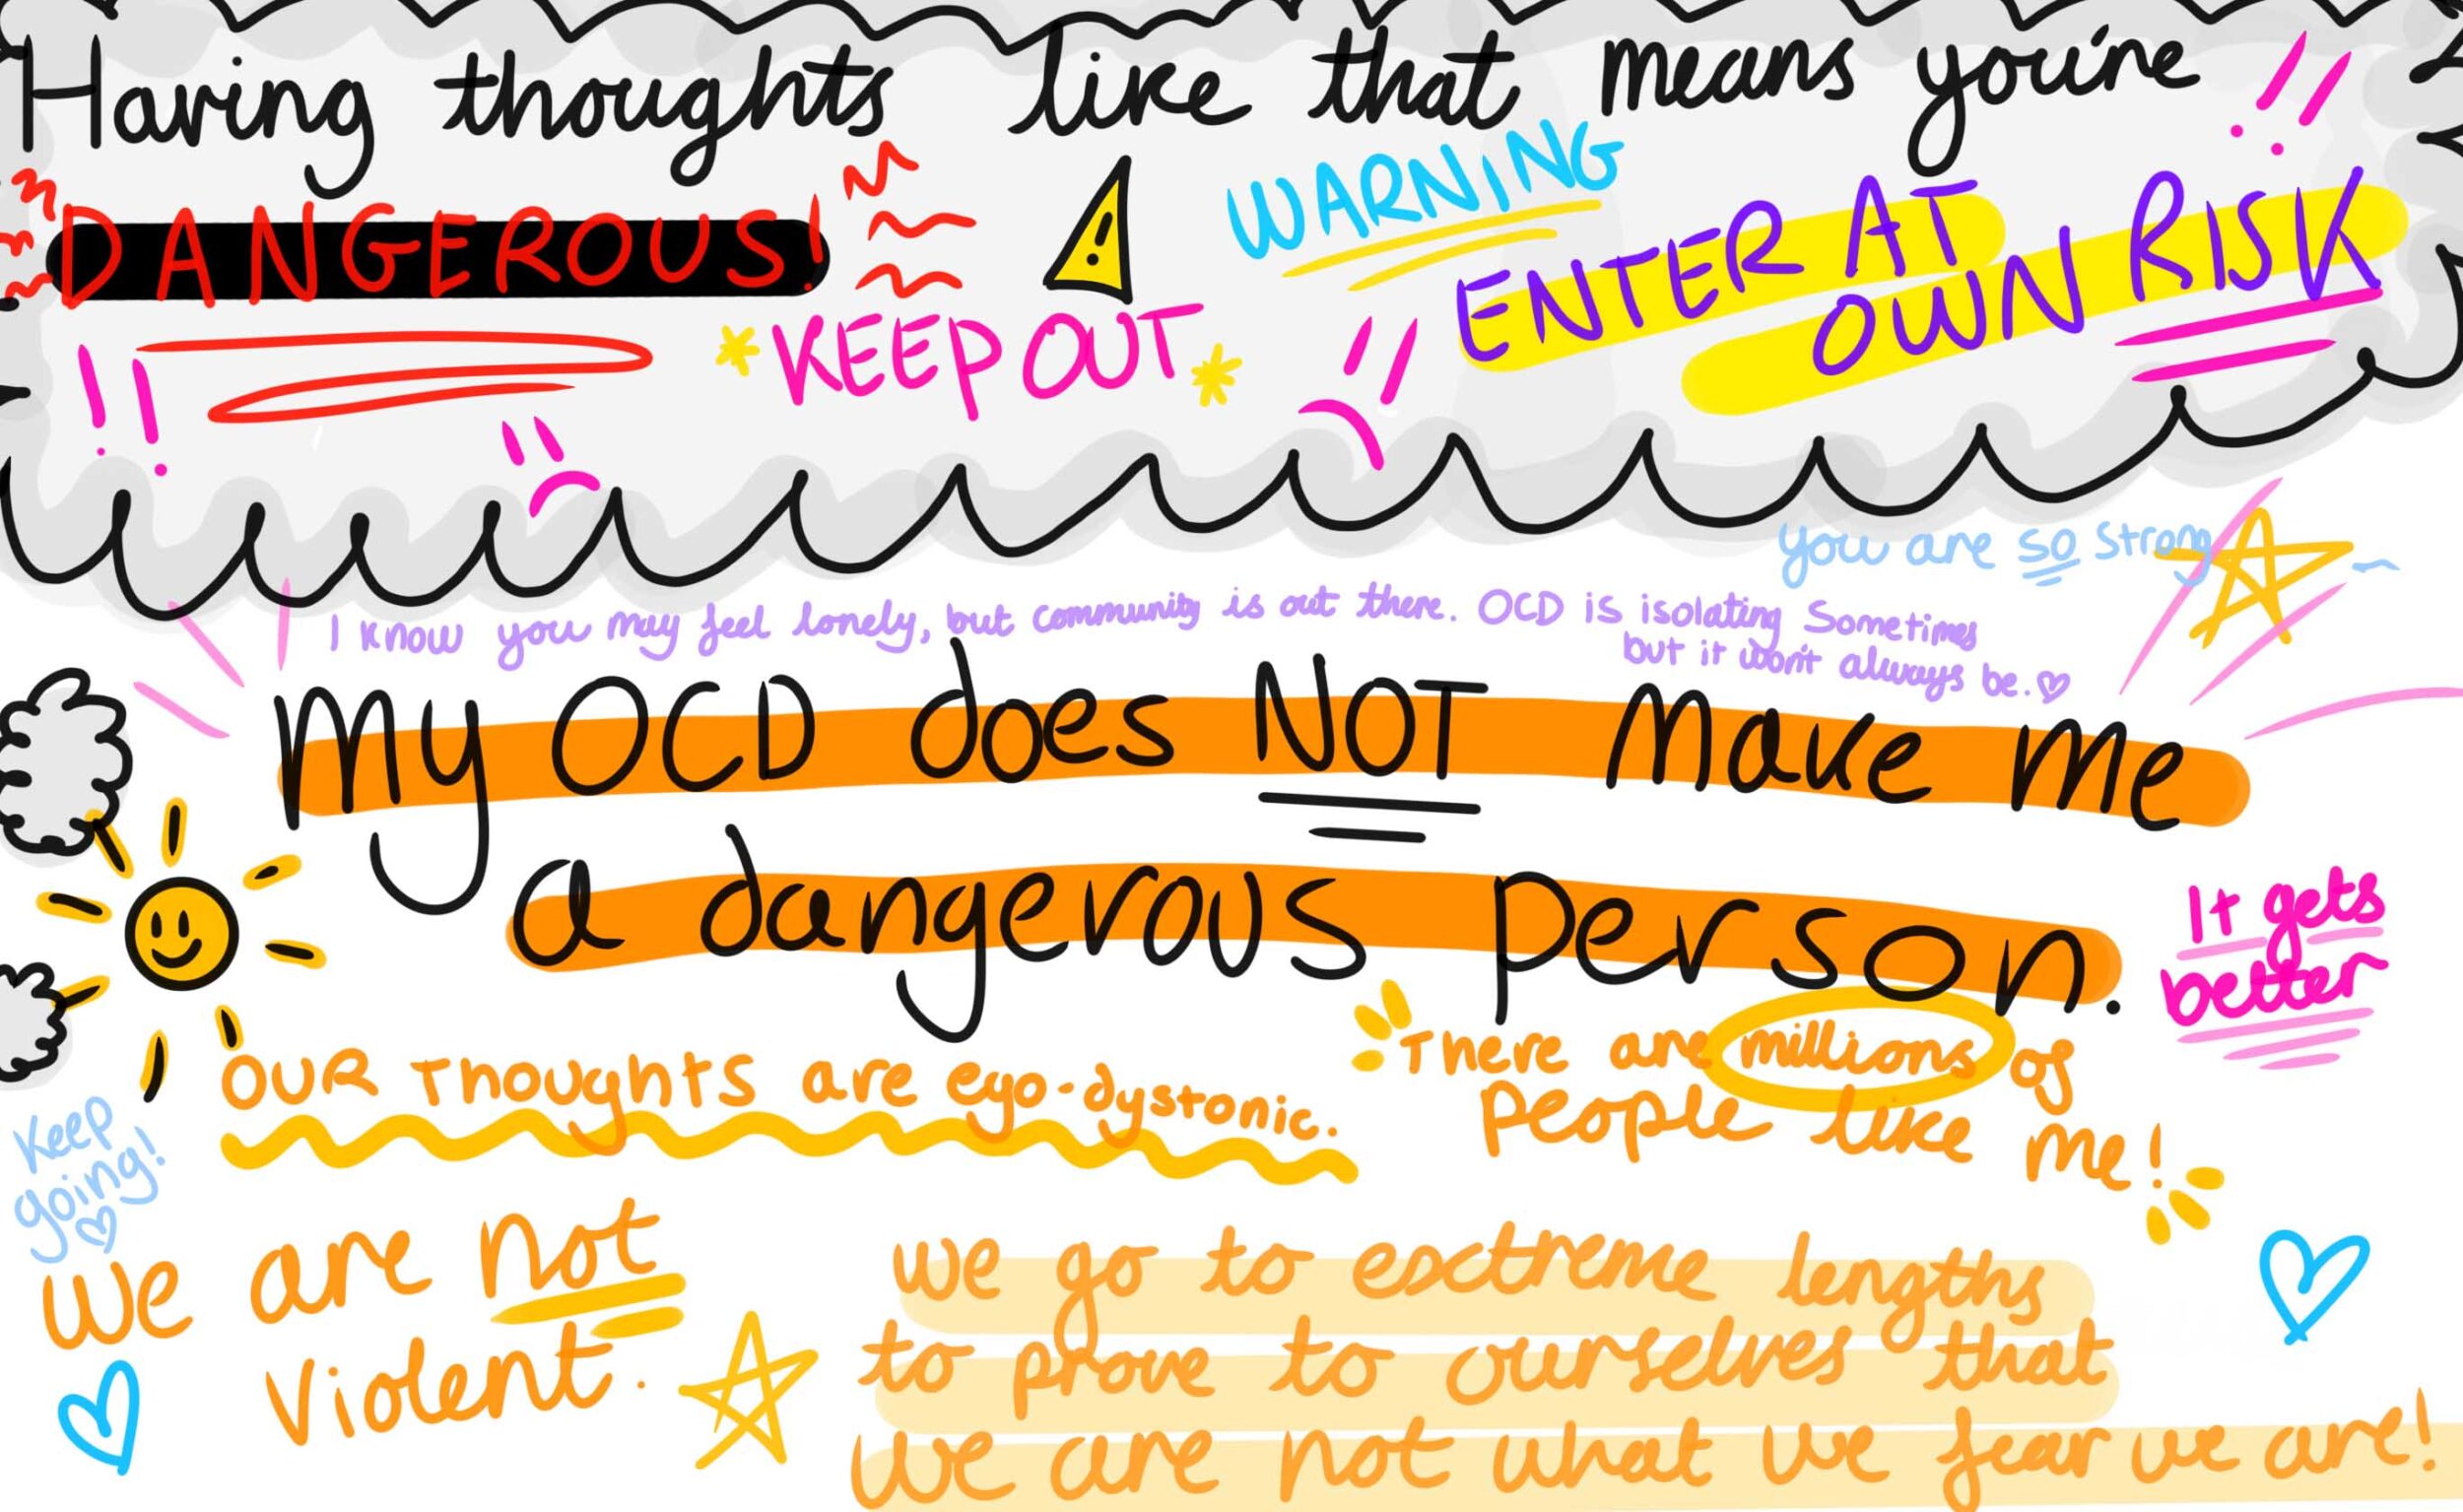 Having thoughts like that means you're !!
DANGEROUS!
WARNING
ENTER AT
OWN RISK
!! *KEEP OUT*
you are so strong
I know you may feel lonely, but community is out there. OCD is isolating sometimes
but it won't always be.
My OCD does NOT make me
a dangerous person.
It gets
better
OUR Thoughts are ego-dystonic.
There are millions of
people like me!
Keep
going!
We are not
violent.
we go to extreme lengths
to prove to ourselves that
we are not what we fear we are!